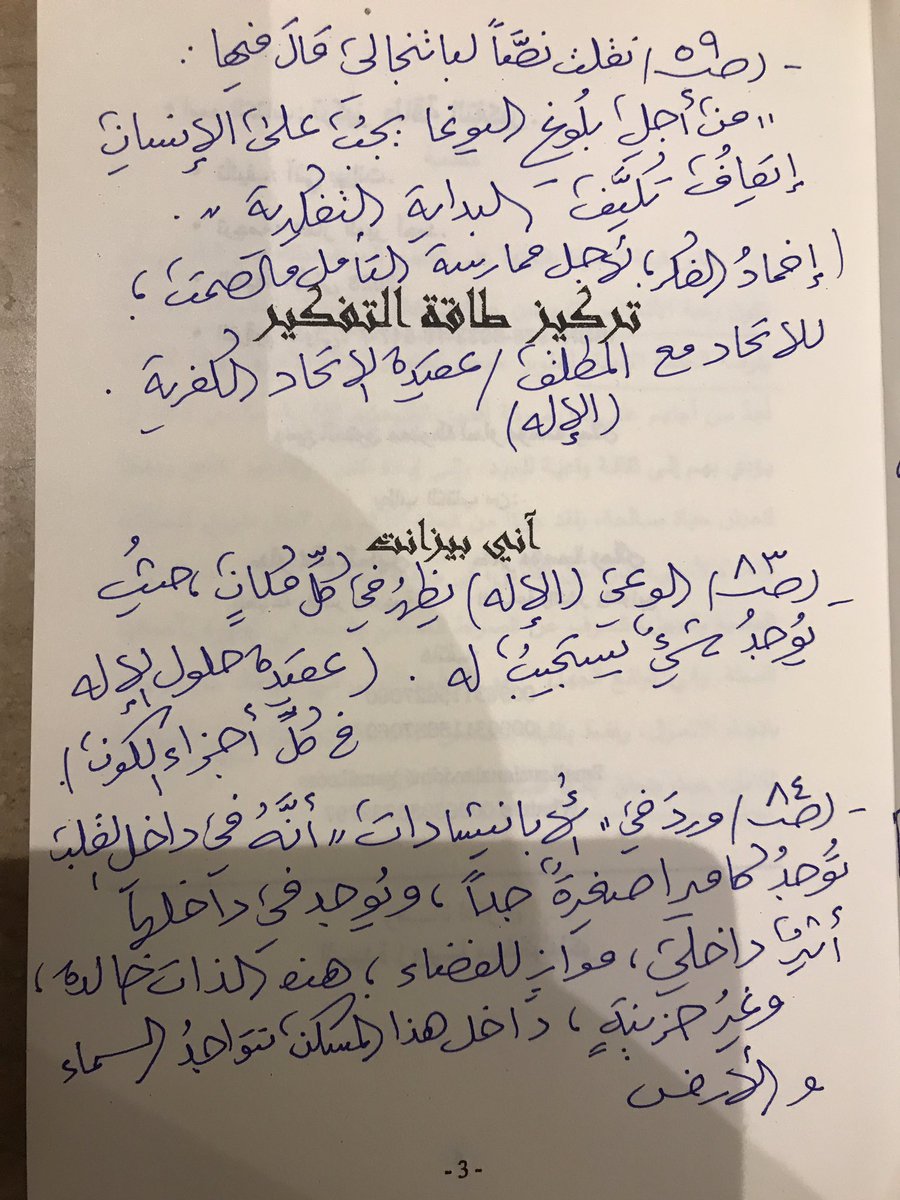 - (صـ ٥٩) نقلت نصًّا لباتنجالي قالَ فيها :
"من أجلِ بلُوغِ اليوغا يجبُ على الإنسانِ
إيقافُ تكيَّف البدايةِ التفكيرية".
(إخمادُ الفكر؛ لأجل ممارسة التأمل والصمت؛
تركيز طاقة التفكير
للاتحاد مع المطلق / عقيدة الاتحاد الكُفرية.
(الإله)
آني بيزانت
- (صـ ٨٣) الوعي (الإله) يظهرُ في كلِّ مكانٍ، حيثُ
يُوجدُ شيءٌ يستجيبُ له. (عقيدة حلول الإله
في كلِّ أجزاء الكون).
- (صـ ٨٤) وردَ في "الأُبانيشادات" أنَّهُ في داخلِ القلب
تُوجدُ كاميرا صغيرةٌ جداً، ويُوجد في داخلها
أثيرٌ داخليٌ، موازٍ للفضاء؛ هذه الذات خالدة،
وغيرُ حزينةٍ، داخل هذا المسكن تتواجدُ السماء
والأرض
- 3 -